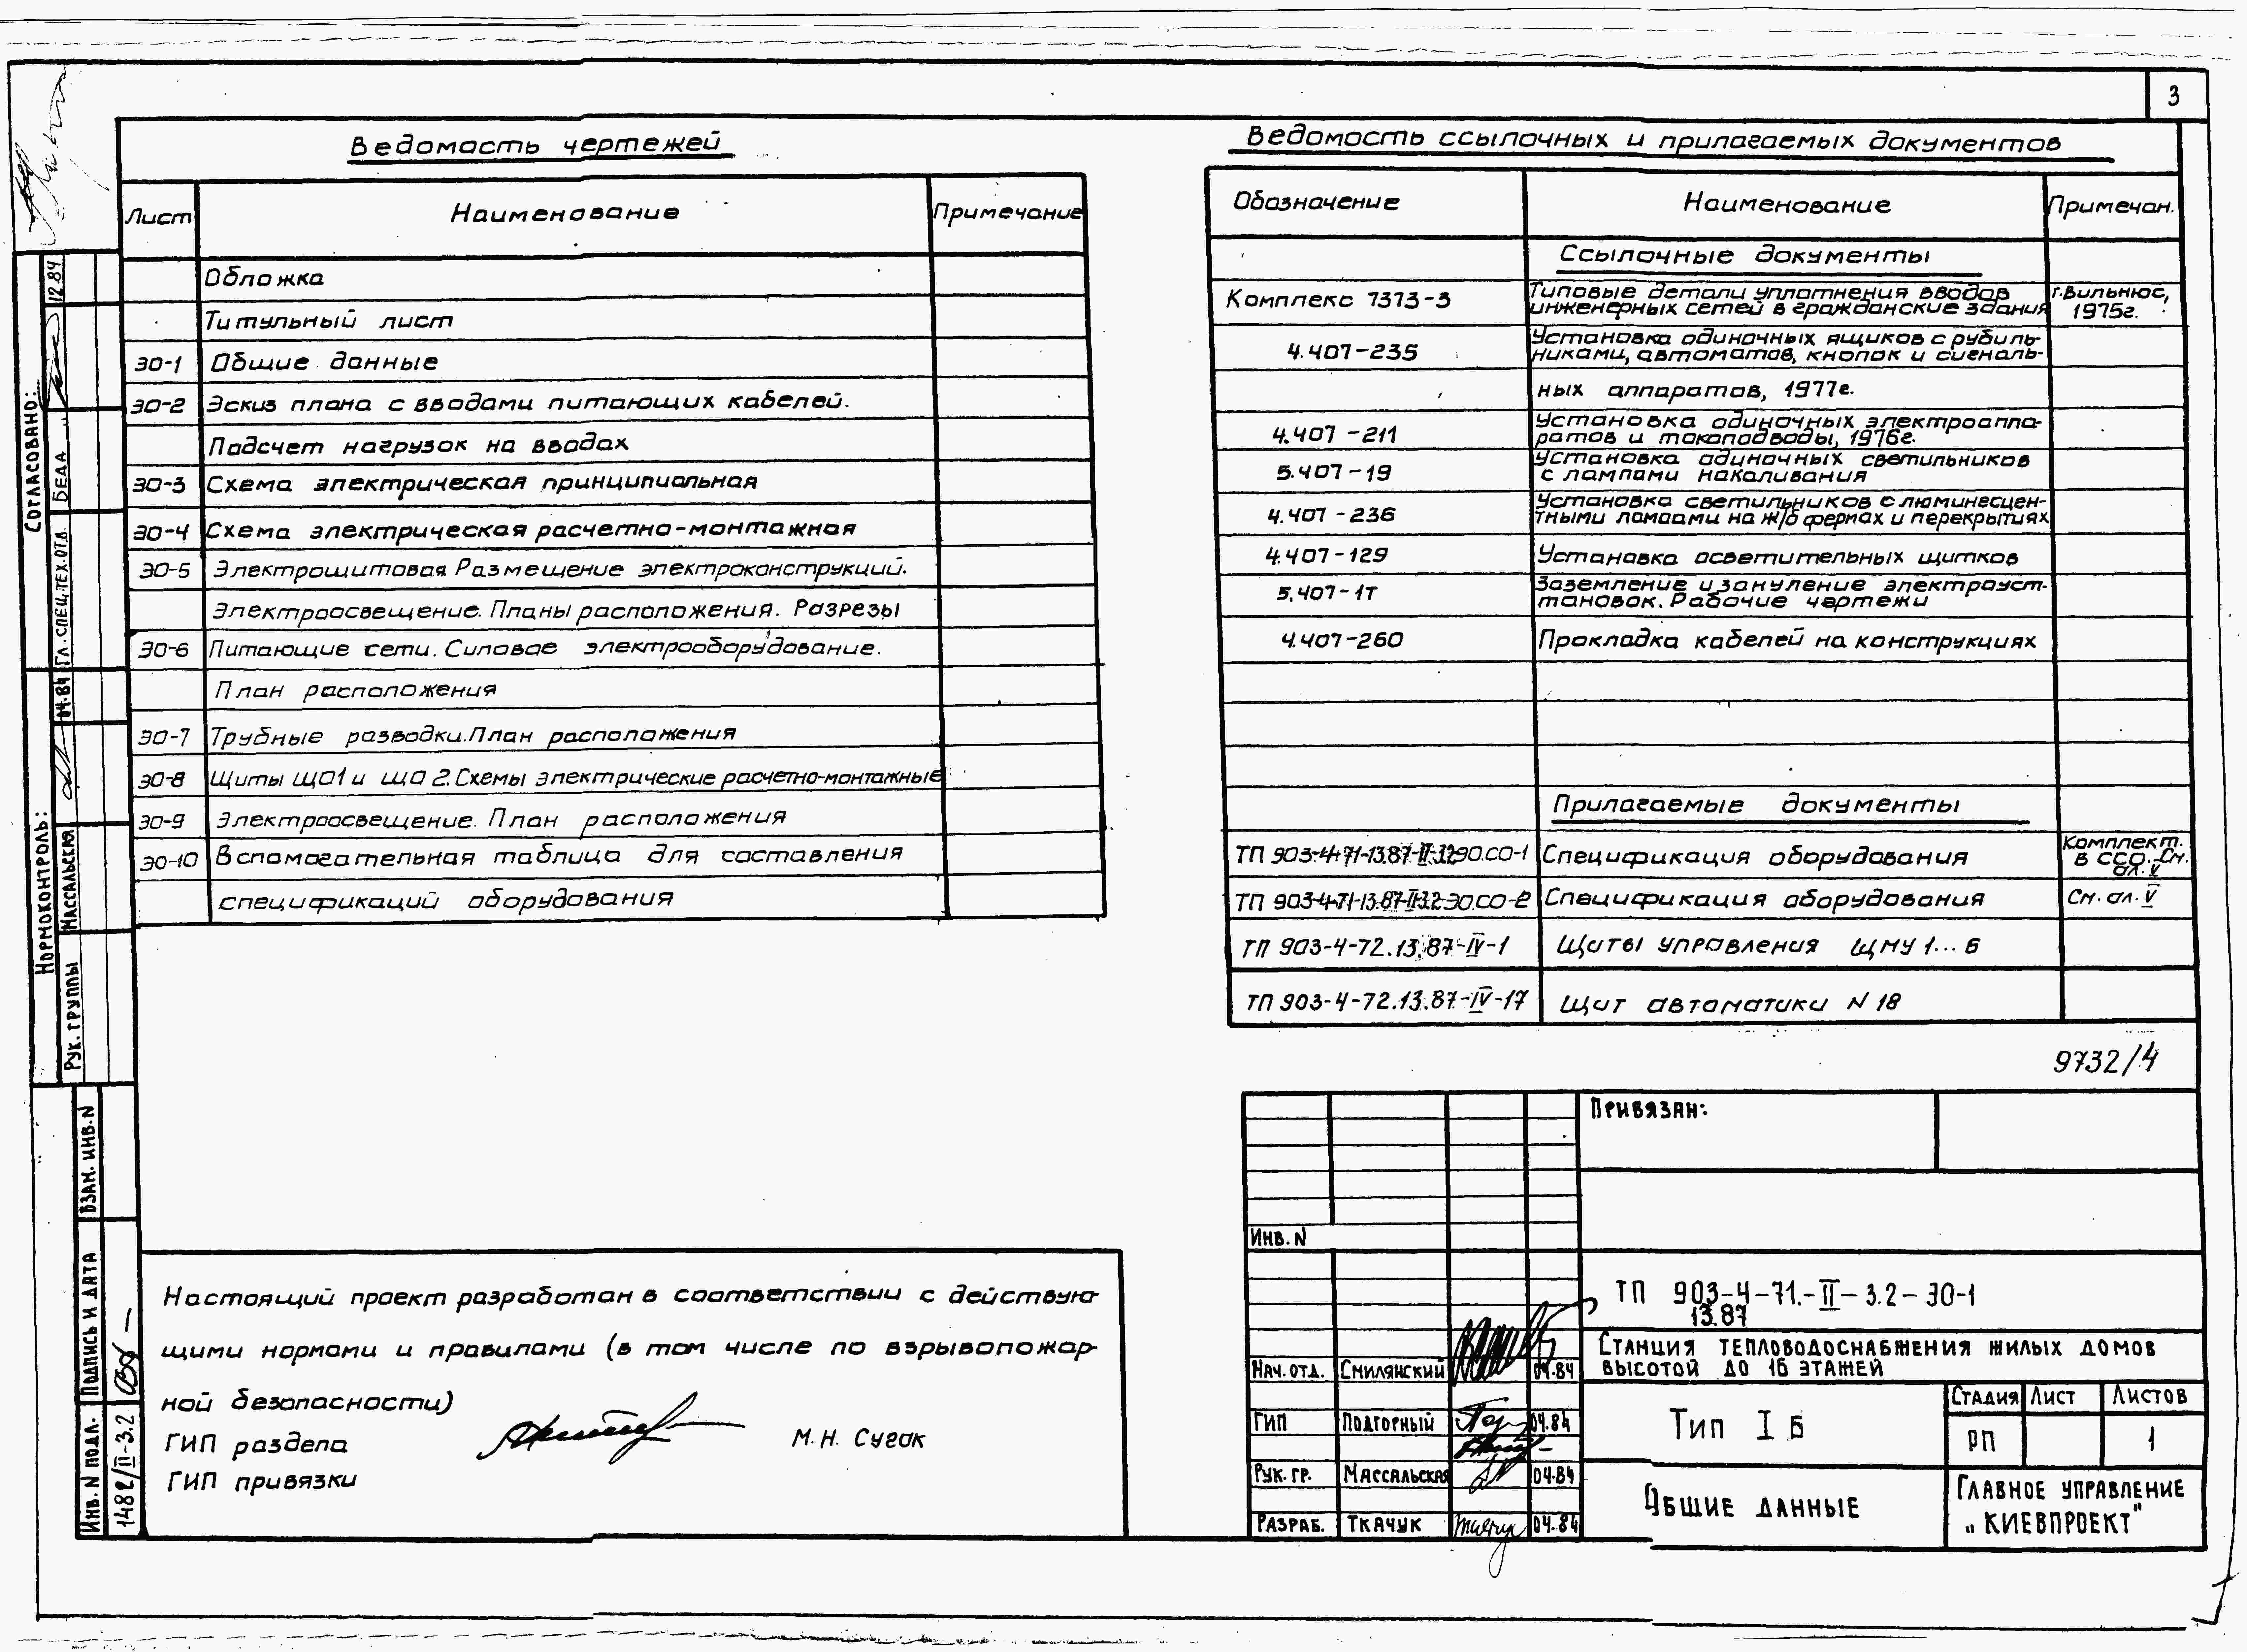 3
Ведомость чертежей
Лист Наименование Примечание
Обложка
Титульный лист
ЭО-1 Общие данные
ЭО-2 Эскиз плана с вводами питающих кабелей.
Подсчет нагрузок на вводах
ЭО-3 Схема электрическая принципиальная
ЭО-4 Схема электрическая расчетно-монтажная
ЭО-5 Электрощитовая. Размещение электроконструкций.
Электроосвещение. Планы расположения. Разрезы
ЭО-6 Питающие сети. Силовое электрооборудование.
План расположения
ЭО-7 Трубные разводки. План расположения
ЭО-8 Щиты ЩО1 и ЩО2. Схемы электрические расчетно-монтажные
ЭО-9 Электроосвещение. План расположения
ЭО-10 Вспомогательная таблица для составления
спецификаций оборудования
Ведомость ссылочных и прилагаемых документов
Обозначение Наименование Примечан.
Ссылочные документы
Комплекс 7373-3 Типовые детали уплотнения вводов инженерных сетей в гражданские здания г. Вильнюс, 1975г.
4.407-235 Установка одиночных ящиков с рубиль-
никами, автоматов, кнопок и сигналь-
ных аппаратов, 1977г.
4.407-211 Установка одиночных электроаппа-
ратов и токоподводы, 1976г.
5.407-19 Установка одиночных светильников
с лампами накаливания
4.407-236 Установка светильников с люминесцен-
тными лампами на ж/б фермах и перекрытиях
4.407-129 Установка осветительных щитков
5.407-1т Заземление и зануление электроуст-
тановок. Рабочие чертежи
4.407-260 Прокладка кабелей на конструкциях
Прилагаемые документы
ТП 903-4-71-13.87-II-3.2-ЭО.СО-1 Спецификация оборудования Комплект. в ССО. См. ал. V
ТП 903-4-71-13.87-II-3.2-ЭО.СО-2 Спецификация оборудования См. ал. V
ТП 903-4-72.13.87-IV-1 Щиты управления ЩМУ 1...6
ТП 903-4-72.13.87-IV-17 Щит автоматики N 18
9732/4
Согласовано:
Гл. спец. тех. отд. Беда 12.84
Нормоконтроль:
Рук. группы Массальская 04.84
Взам. инв. N
Подпись и дата
Инв. N подл. 1482/II-3.2
Настоящий проект разработан в соответствии с действую-
щими нормами и правилами (в том числе по взрывопожар-
ной безопасности)
ГИП раздела М.Н. Сугак
ГИП привязки
Привязан:
Инв. N
ТП 903-4-71.-II-3.2-ЭО-1
13.87
Станция тепловодоснабжения жилых домов
высотой до 16 этажей
Нач. отд. Смилянский 04.84
ГИП Подгорный 04.84
Рук. гр. Массальская 04.84
Разраб. Ткачук Ткачук 04.84
Тип I Б
Стадия Лист Листов
РП 1
Общие данные
Главное управление
„Киевпроект"